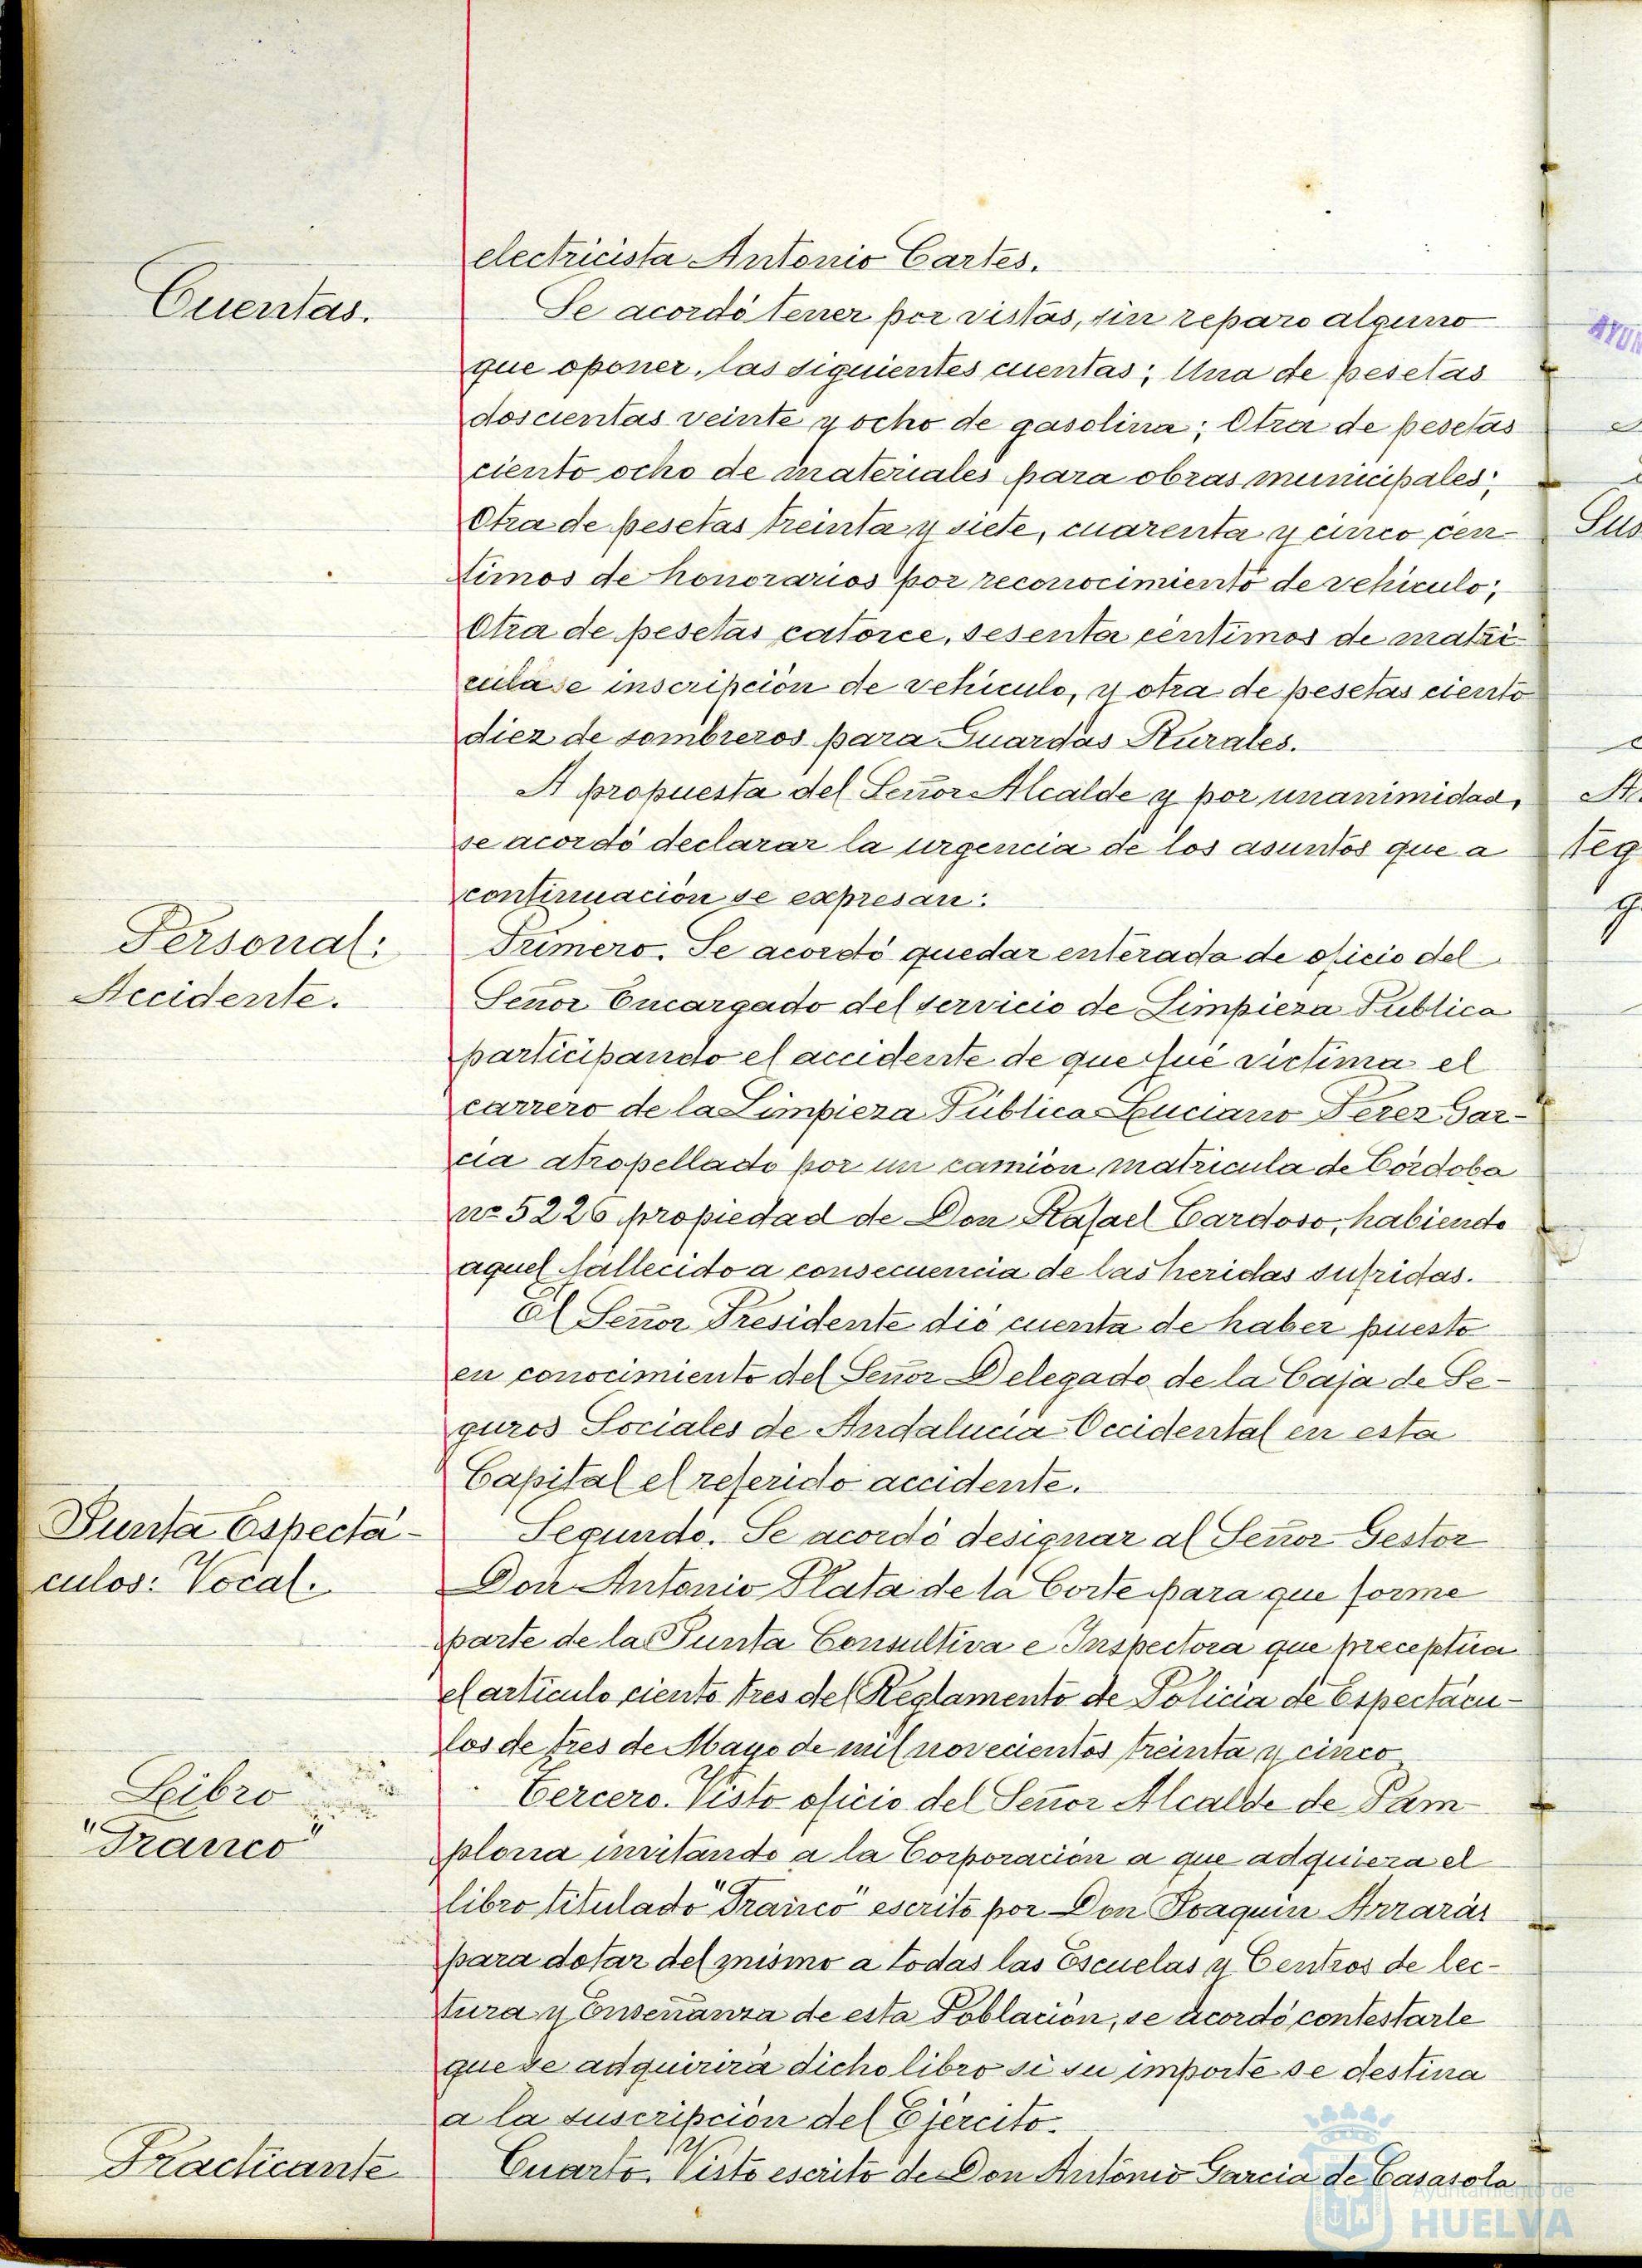 electricista Antonio Cartes.
Cuentas.
Se acordó tener por vistas, sin reparo alguno
que oponer, las siguientes cuentas; Una de pesetas
doscientas veinte y ocho de gasolina; Otra de pesetas
ciento ocho de materiales para obras municipales;
Otra de pesetas treinta y siete, cuarenta y cinco cen-
timos de honorarios por reconocimiento de vehiculo;
Otra de pesetas catorce, sesenta centimos de matri-
cula e inscripción de vehiculo, y otra de pesetas ciento
diez de sombreros para Guardas Rurales.
A propuesta del Señor Alcalde y por unanimidad,
se acordó declarar la urgencia de los asuntos que a
continuación se expresan:
Personal:
Accidente.
Primero. Se acordó quedar enterada de oficio del
Señor Encargado del servicio de Limpieza Publica
participando el accidente de que fué victima el
carrero de la Limpieza Pública Luciano Perez Gar-
cia atropellado por un camión matricula de Córdoba
nº 5226 propiedad de Don Rafael Cardoso, habiendo
aquel fallecido a consecuencia de las heridas sufridas.
El Señor Presidente dió cuenta de haber puesto
en conocimiento del Señor Delegado de la Caja de Se-
guros Sociales de Andalucia Occidental en esta
Capital el referido accidente.
Junta Espectá-
culos: Vocal.
Segundo. Se acordó designar al Señor Gestor
Don Antonio Plata de la Corte para que forme
parte de la Junta Consultiva e Inspectora que preceptúa
el articulo ciento tres del Reglamento de Policia de Espectácu-
los de tres de Mayo de mil novecientos treinta y cinco
Libro
"Franco"
Tercero. Visto oficio del Señor Alcalde de Pam-
plona invitando a la Corporación a que adquiera el
libro titulado "Franco" escrito por Don Joaquin Arrarás
para dotar del mismo a todas las Escuelas y Centros de lec-
tura y Enseñanza de esta Población, se acordó contestarle
que se adquirirá dicho libro si su importe se destina
a la suscripción del Ejército.
Practicante
Cuarto. Visto escrito de Don Antonio Garcia de Casasola
Ayuntamiento de
HUELVA
AYUN
Sus